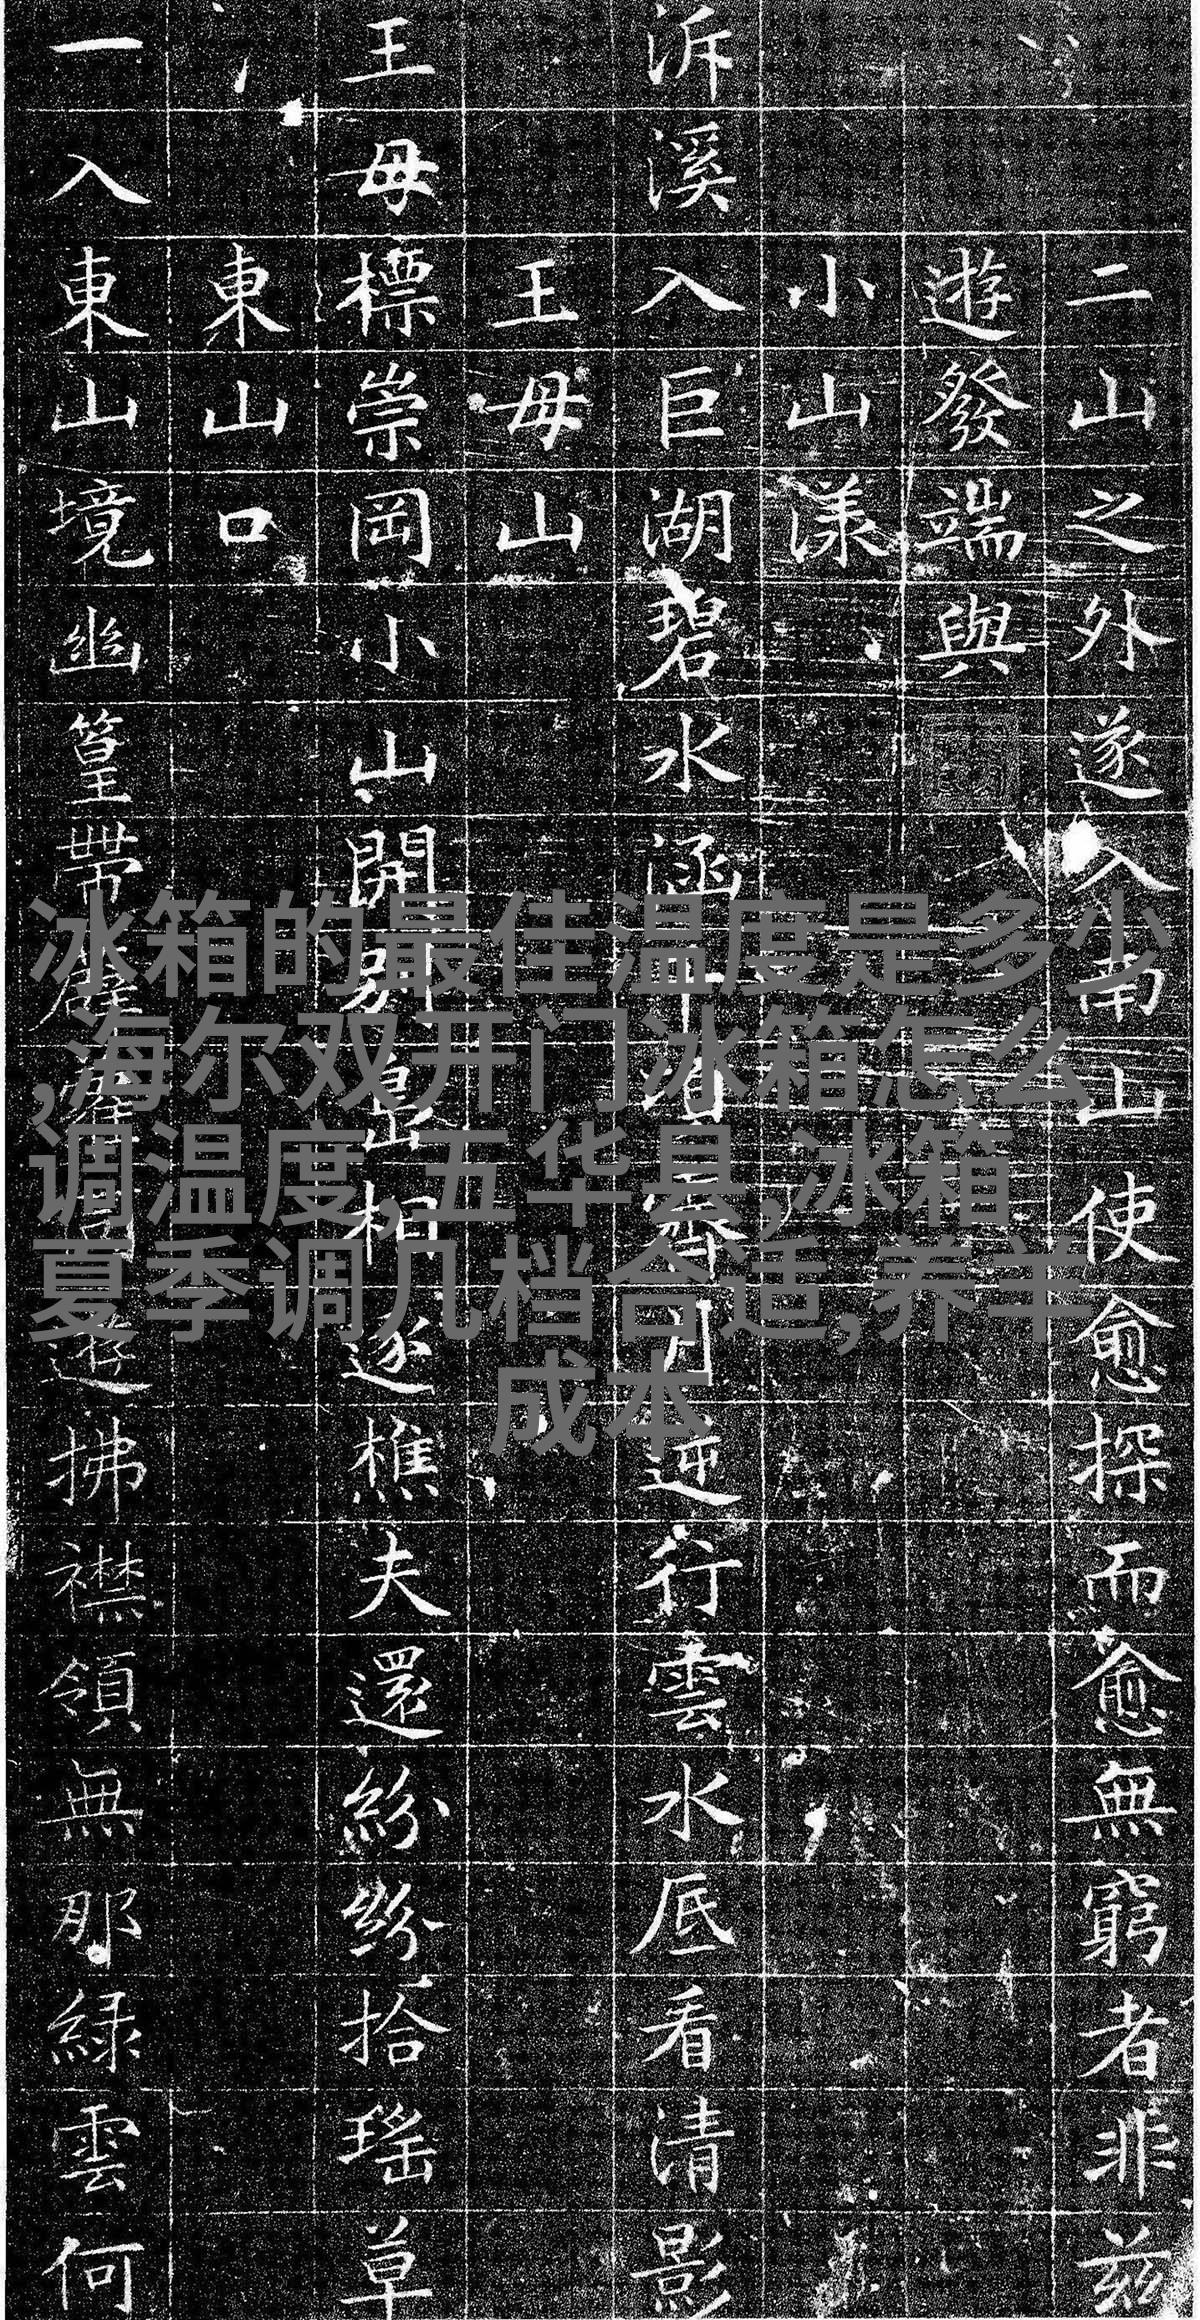 二山之外遂入南山使愈探而愈無窮者非茲
遊發端與
小山漾
泝溪入巨湖碧水涵逆行雲水底看清影
王母山
王母標崇岡小山開別阜相逐樵夫還紛紛拾瑤草
東山口
一入東山境幽篁帶遊拂襟領無那綠雲何
冰箱的最佳温度是多少
,海尔双开门冰箱怎么
调温度,五华县,冰箱
夏季调几档合适,养羊
成本